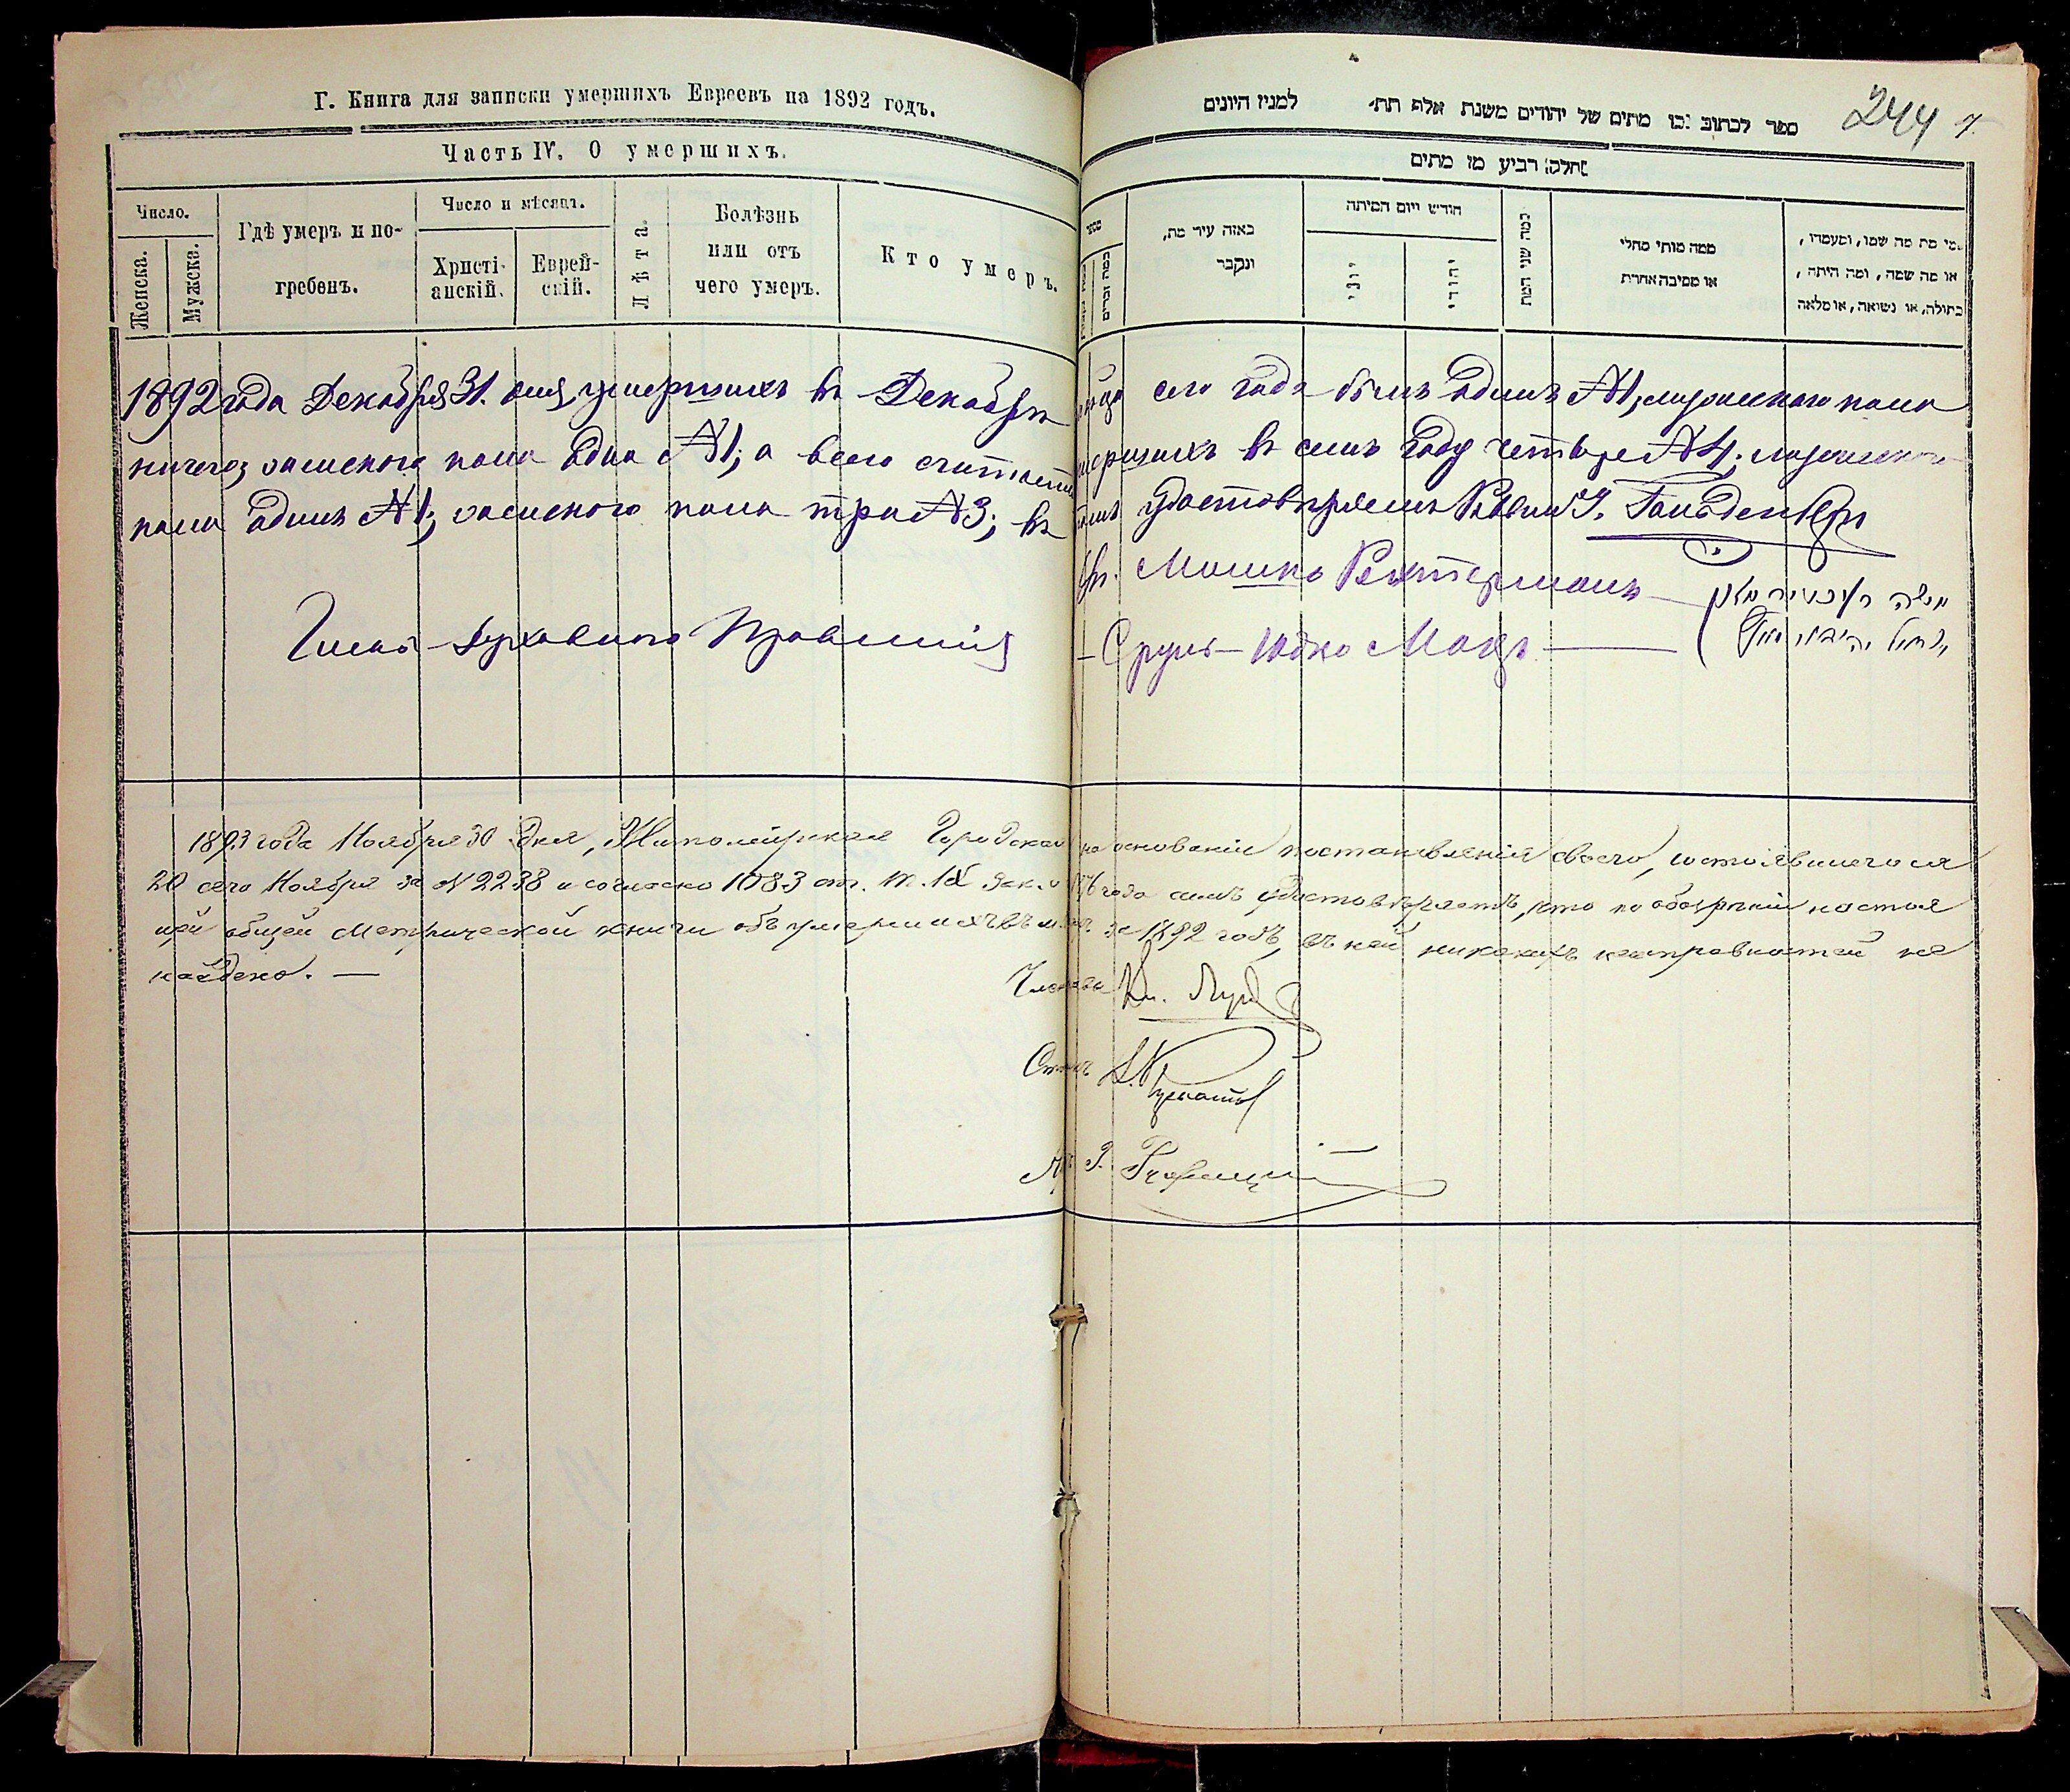 Г. Книга для записки умершихъ Евреевъ на 1892 годъ.
Часть IV. О умершихъ.
Число.
Женска.
Мужска.
Гдѣ умеръ и по-
гребенъ.
Число и мѣсяцъ.
Христі-
анскій.
Еврей-
скій.
Лѣта.
Болѣзнь
или отъ
чего умеръ.
Кто умеръ.
244
ספר לכתוב בו מתים של יהודים משנת אלף תת׳ למנין היונים
חלק רביעי מן מתים
באזה עיר מת,
ונקבר
חודש ויום המיתה
יוני
יהודי
כמה שני המת
ממה מותי מחלי
או מסיבה אחרת
מי מת מה שמו, ומעמדו,
או מה שמה, ומה היתה,
בתולה, או נשואה, או מלאה
1892 года Декабря 31. дня, умершихъ въ Декабрѣ мѣсяцѣ сего года былъ одинъ №1, мужескаго пола
ничего, женскаго пола одна №1; а всего считается умершихъ въ семъ году четыре №4; мужескаго
пола одинъ №1; женскаго пола три №3; въ томъ удостовѣряемъ Раввинъ Гольденберг
Мошко Рехтерманъ משה
Члены Духовнаго Правленія Сруль-Юдко Моцъ
1893 года Ноября 30 дня, Житомирская Городская на основаніи постановленія своего, состоявшегося
20 сего Ноября за № 2238 и согласно 1083 ст. т. IX Зак. 1876 года симъ удостовѣряетъ, что по обозрѣніи настоя
щей общей Метрической книги объ умершихъ Евреяхъ за 1892 годъ, въ ней никакихъ неисправностей не
найдено.
Члены